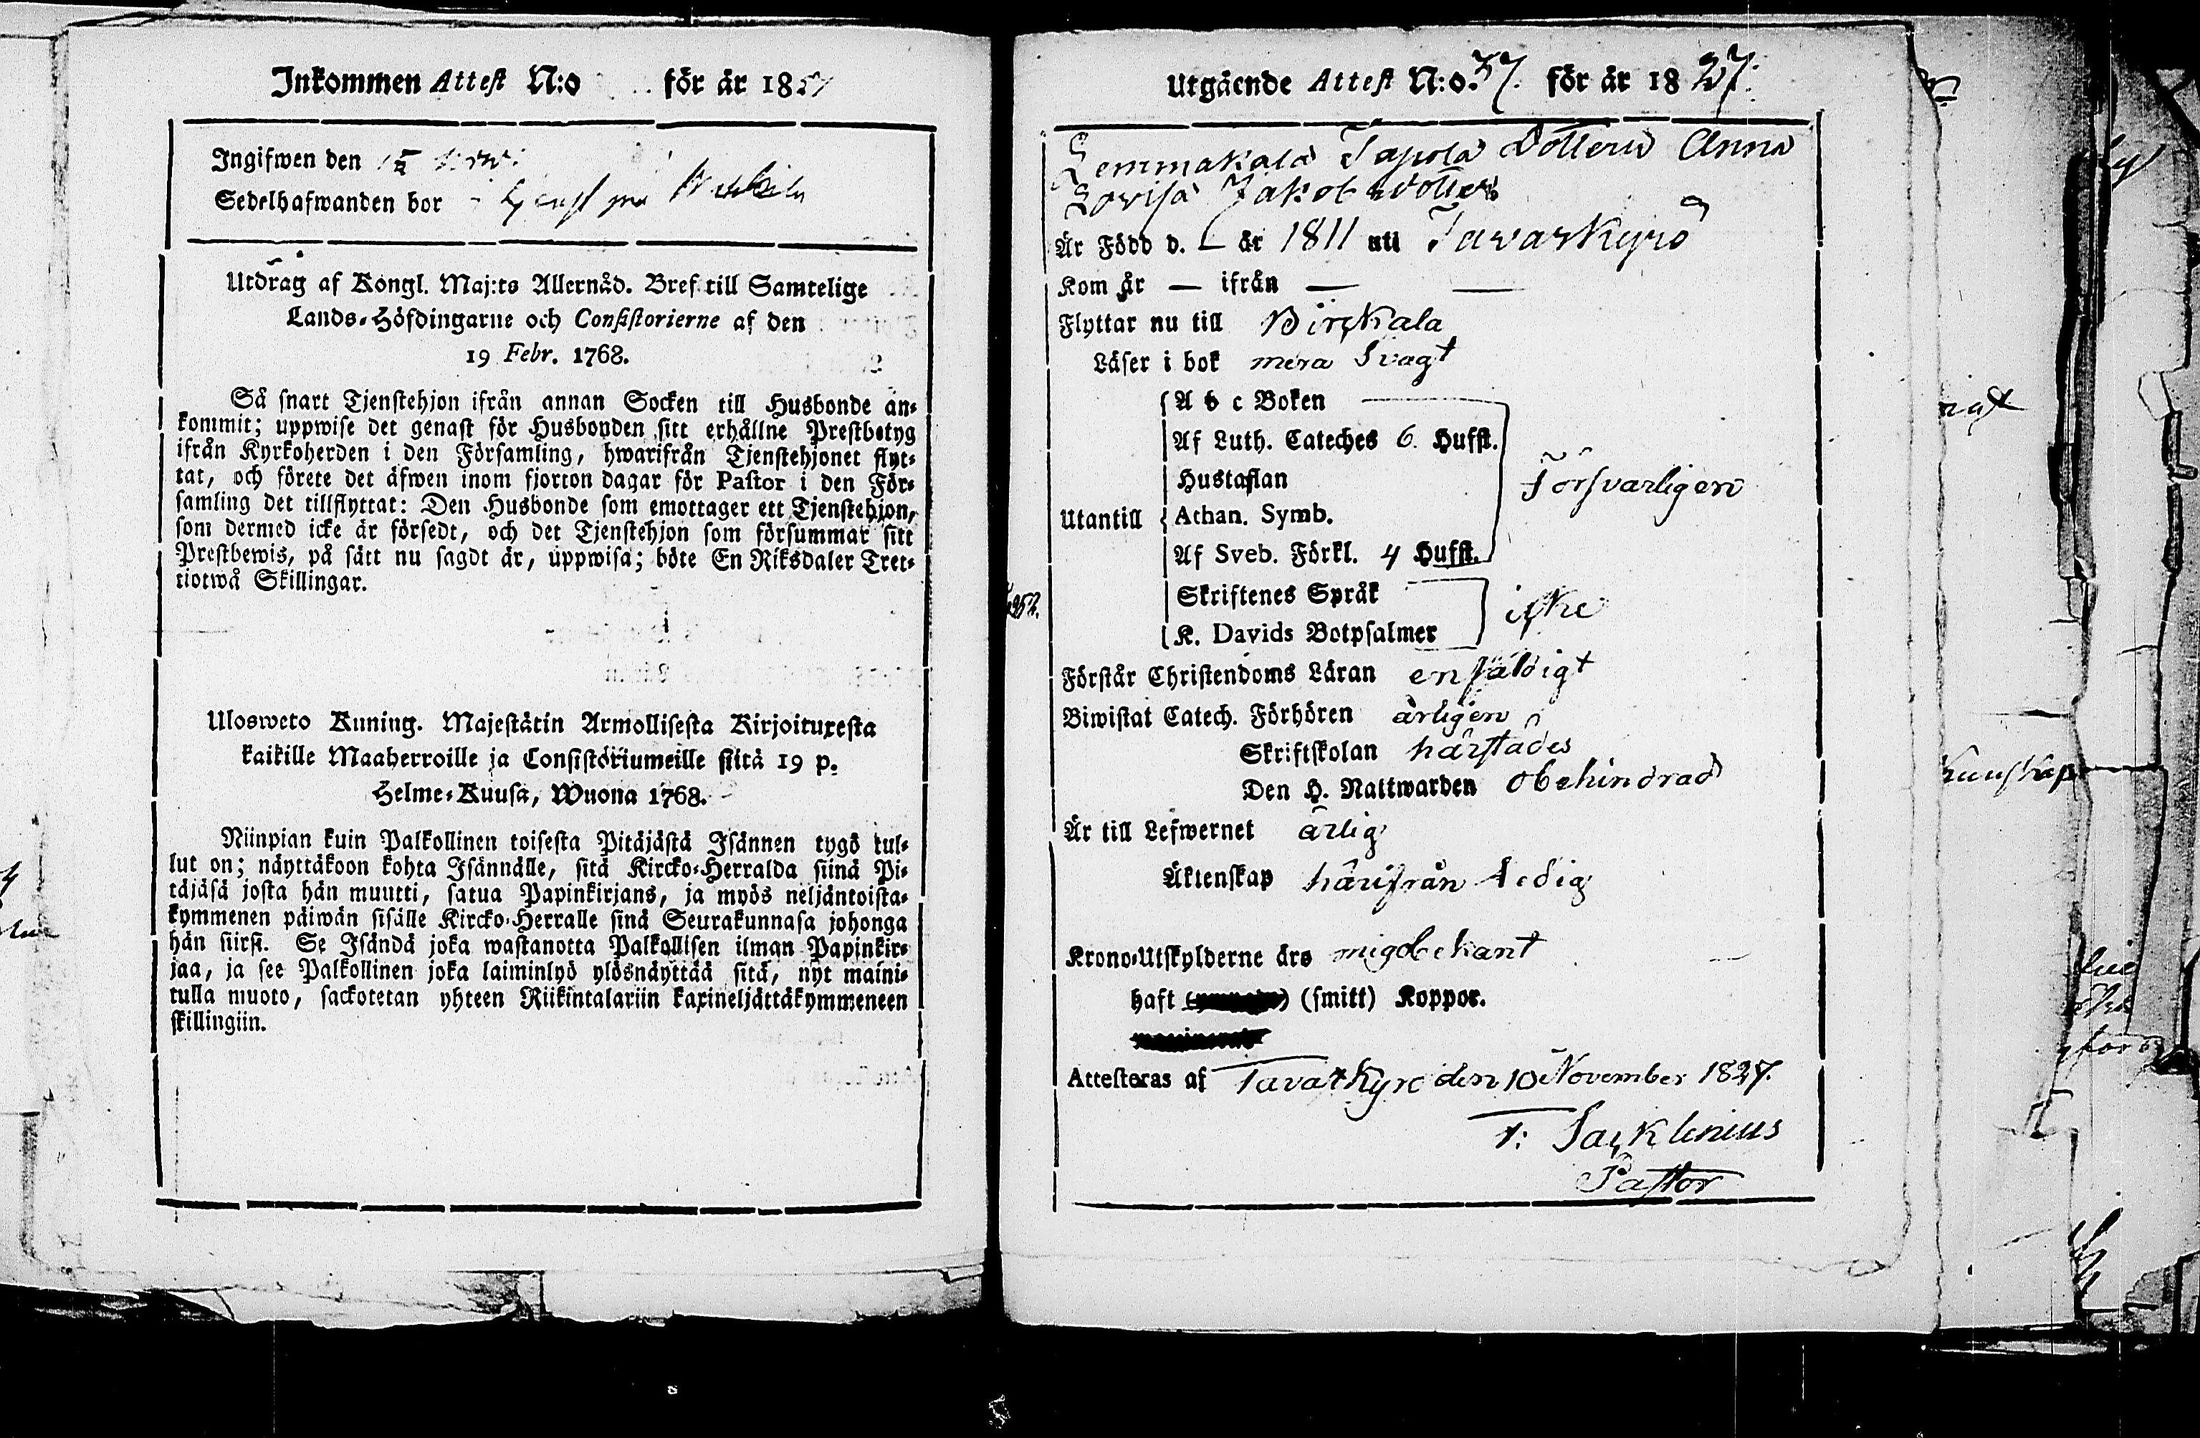 Inkommen Attest N:o för år 18
Ingifwen den
Sedelhafwanden bor
Utdrag af Kongl. Maj:ts Allernåd. Bref till Samtelige
Lands-Höfdingarne och Consistorierne af den
19 Febr. 1768.
Så snart Tjenstehjon ifrån annan Socken till Husbonde an-
kommit; uppwise det genast för Husbonden sitt erhållne Prestbetyg
ifrån Kyrkoherden i den Församling, hwarifrån Tjenstehjonet flyt-
tat, och förete det äfwen inom fjorton dagar för Pastor i den För-
samling det tillflyttat: Den Husbonde som emottager ett Tjenstehjon,
som dermed icke är försedt, och det Tjenstehjon som försummar sitt
Prestbewis, på sätt nu sagdt är, uppwisa; böte En Riksdaler Tret-
tiotwå Skillingar.
Ulosweto Kuning. Majestätin Armollisesta Kirjoituxesta
kaikille Maaherroille ja Consistoriumeille siitä 19 p.
Helme-Kuusa, Wuona 1768.
Niinpian kuin Palkollinen toisesta Pitäjästä Isännen tygö tul-
lut on; näyttäkoon kohta Isännälle, sitä Kircko-Herralda siinä Pi-
täjäsä josta hän muutti, satua Papinkirjans, ja myös neljäntoista-
kymmenen päiwän sisälle Kircko-Herralle sinä Seurakunnasa johonga
hän siirsi. Se Isändä joka wastanotta Palkollisen ilman Papinkir-
jaa, ja see Palkollinen joka laiminlyö ylösnäyttää sitä, nyt maini-
tulla muoto, sackotetan yhteen Riikintalariin kaxineljättäkymmeneen
skillingiin.
Utgående Attest N:o 37. för år 1827.
Lemmakala Tapola Dottern Anna
Lovisa Jakobsdotter
Är Född d. — år 1811 uti Tavaskyrö
Kom år — ifrån —
Flyttar nu till Birckala
Läser i bok mera Svagt
A b c Boken
Af Luth. Cateches 6. Hufst.
Hustaflan
Försvarligen
Utantill Athan. Symb.
Af Sveb. Förkl. 4 Hufst.
Skriftenes Språk
icke
K. Davids Botpsalmer
Förstår Christendoms Läran enfaldigt
Biwistat Catech. Förhören ärligen
Skriftskolan härstädes
Den H. Nattwarden obehindrad
Är till Lefwernet ärlig
Äktenskap härifrån Ledig
Krono-Utskylderne äro mig obekant
haft (smitt) Koppor.
Attesteras af Tavastkyro den 10 November 1827.
Pastor